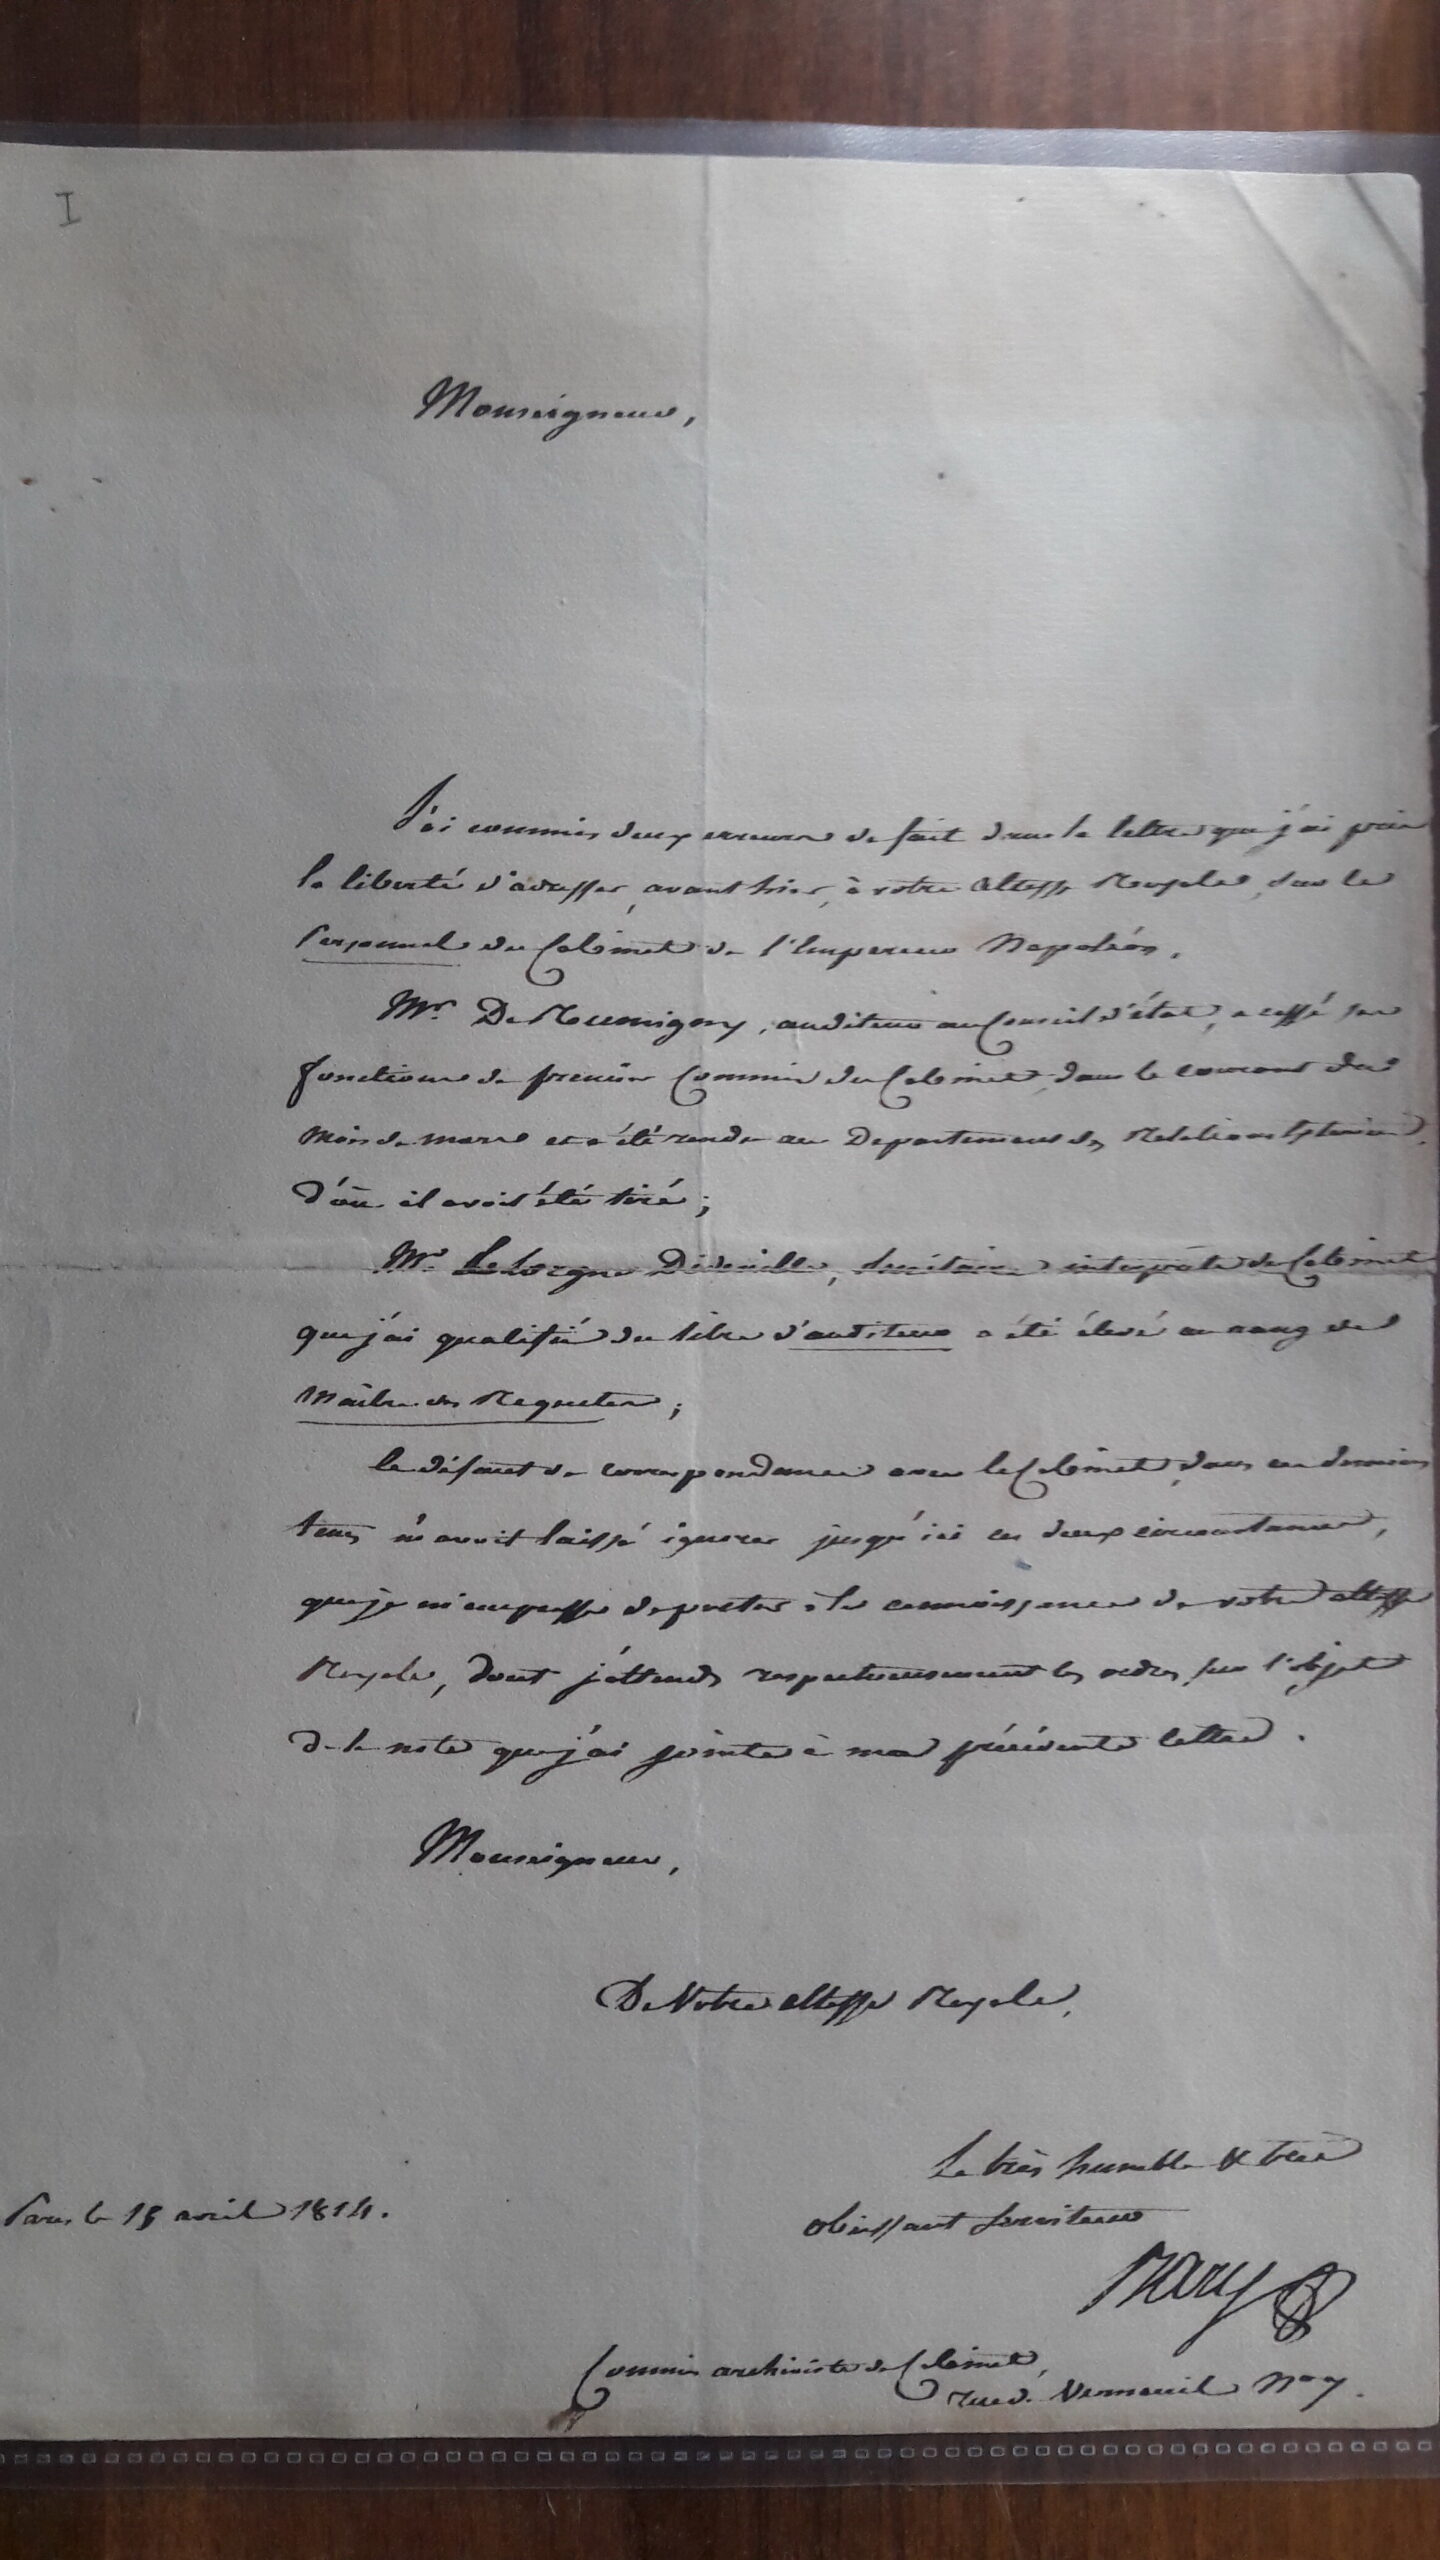 I
Monseigneur,
J'ai commis deux erreurs de fait dans la lettre que j'ai pris
la liberté d'adresser, avant hier, à votre altesse Royale, sur le
Personnel du Cabinet de l'Empereur Napoléon.
Mr. De Rumigny, auditeur au Conseil d'état, a cessé ses
fonctions de premier Commis du Cabinet, dans le courant du
mois de mars et a été rendu au Departement des Relations Exterieures
d'où il avoit été tiré;
Mr. Lelorgne Dideville, Secrétaire interprète du Cabinet
que j'ai qualifié du titre d'auditeur a été élevé au rang de
Maitre des Requetes;
le défaut de correspondance avec le Cabinet, dans ces derniers
tems m'avoit laissé ignorer jusqu'ici ces deux circonstances,
que je m'empresse de porter à la connoissance de votre altesse
Royale, dont j'attends respectueusement les ordres sur l'objet
de la note que j'ai jointe à ma précédente lettre.
Monseigneur,
De Votre altesse Royale,
Le très humble & très
obéissant Serviteur
Bary
Paris le 15 avril 1814.
Commis archiviste du Cabinet,
rue de Verneuil No 7.